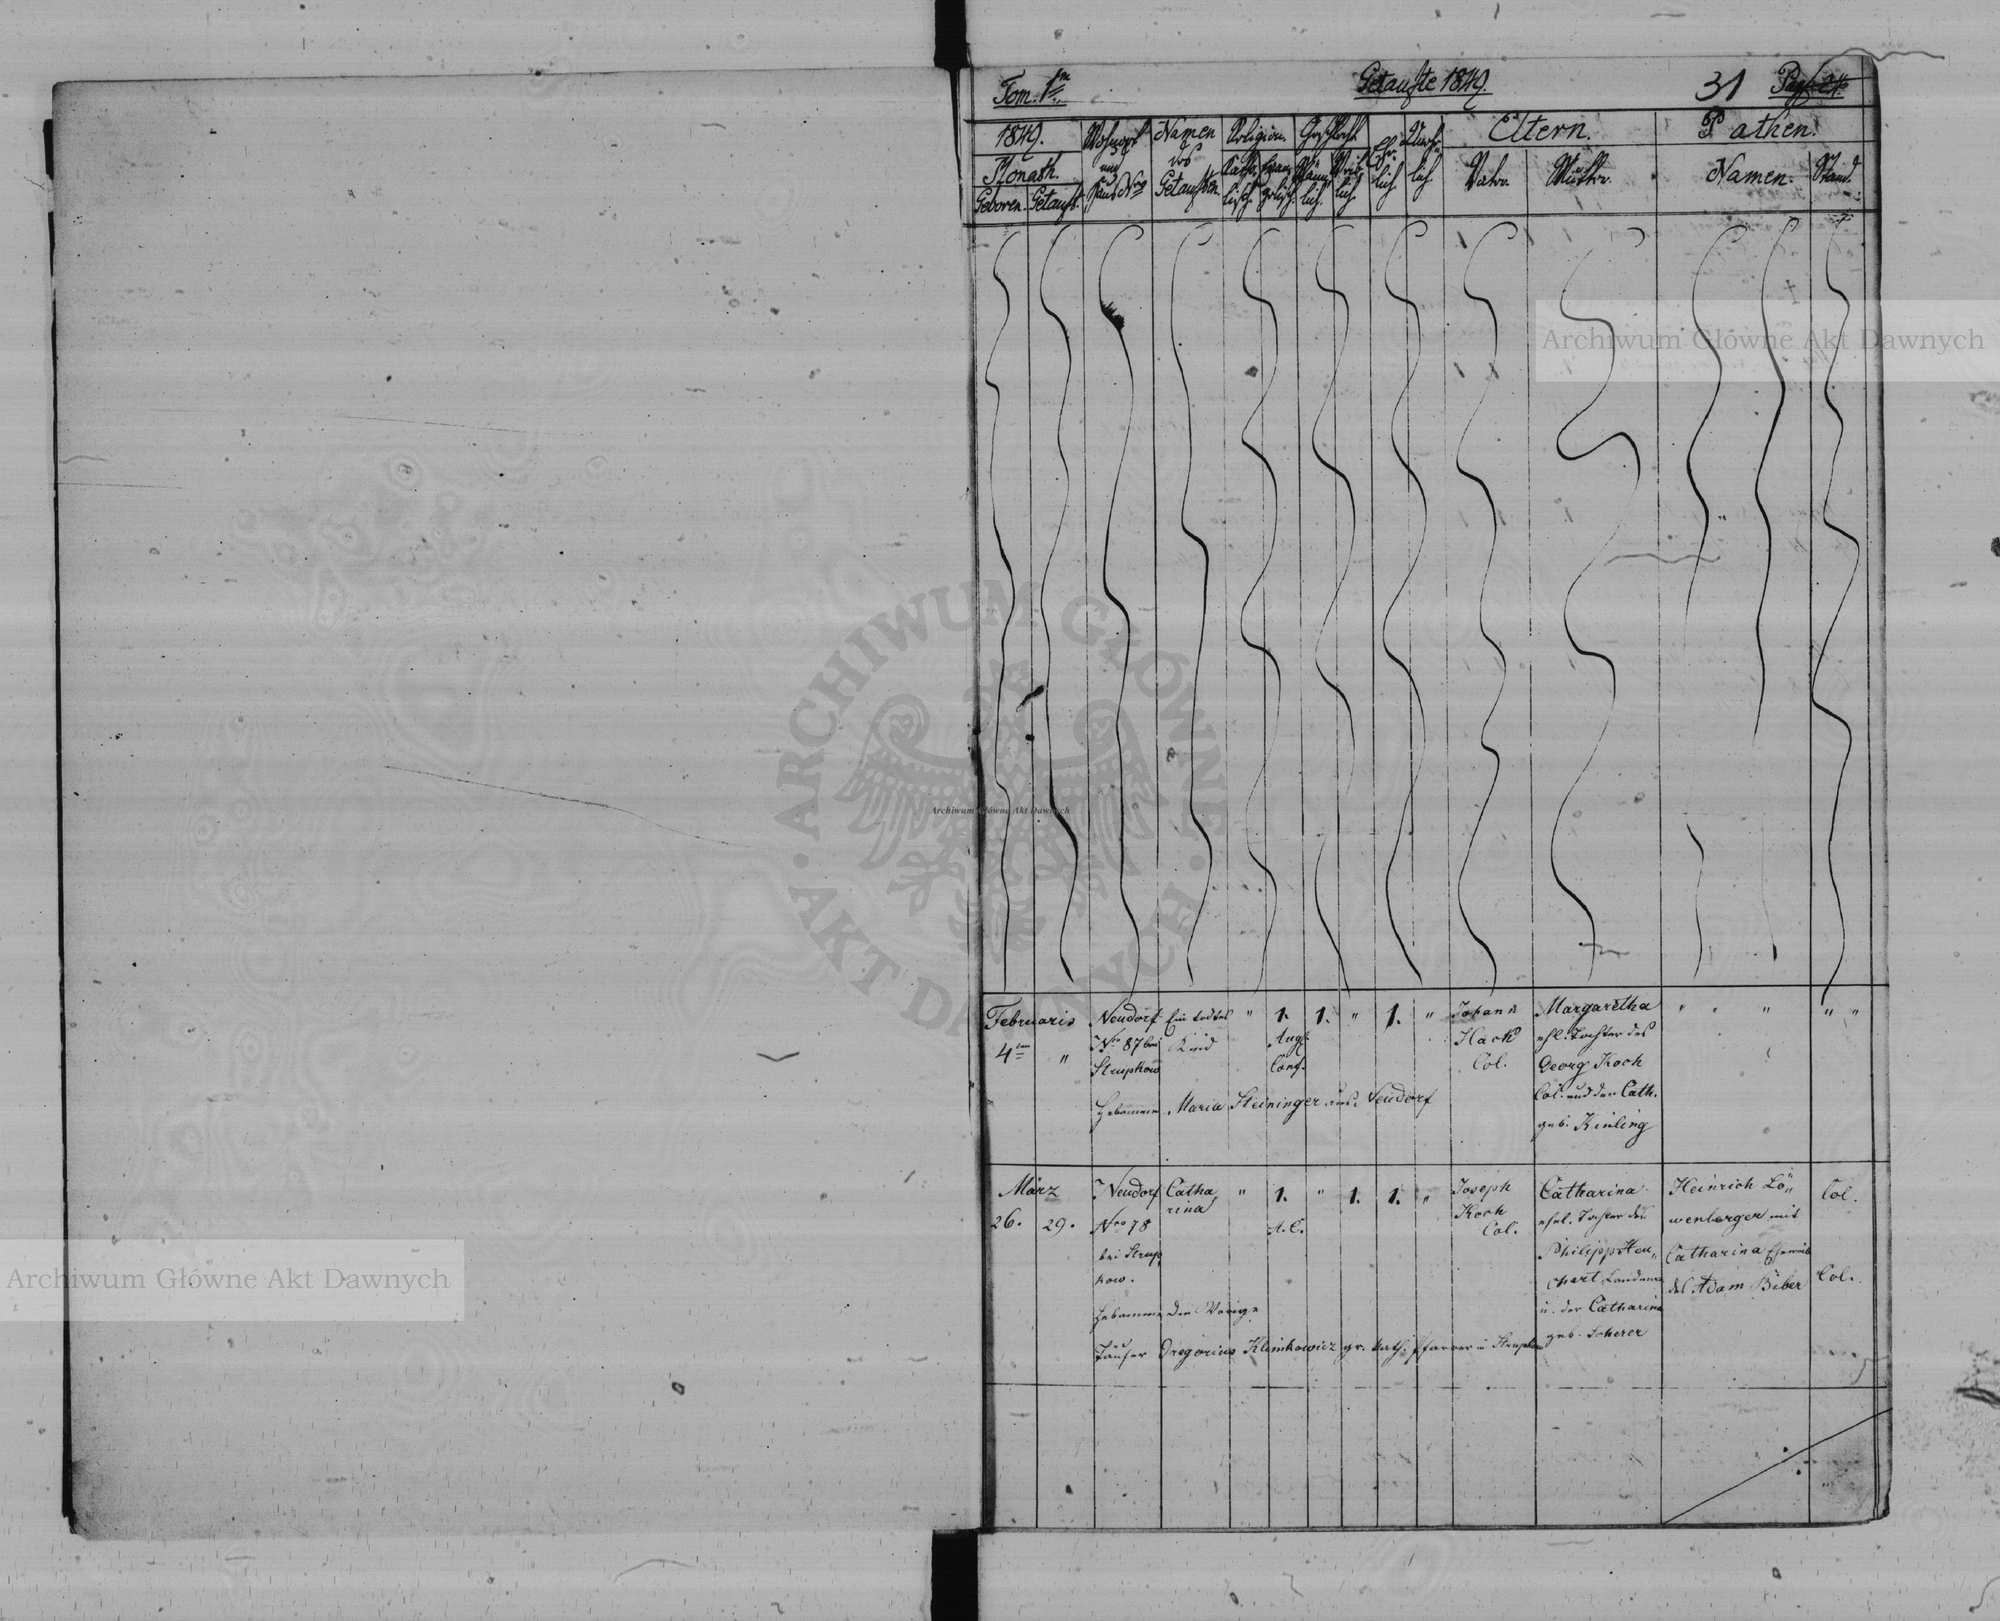 Tom. 1m
Getaufte 1849.
31
Pag. 21.
1849.
Monath.
Geboren. Getauft.
Wohnort und Haus Nro
Namen des Getauften.
Religion.
Katholisch. Evangelisch.
Geschlecht.
Männlich. Weiblich.
Ehelich.
Unehlich.
Eltern.
Vater. Mutter.
Pathen.
Namen. Stand.
Februaris
4ten "
Neudorf
Nro 87 bei
Strupkow
Ein todtes
Kind
" 1. 1. " 1. "
Augs.
Conf.
Johann
Hack
Col.
Margaretha
ehl. Tochter des
Georg Koch
Col. und der Cath.
geb. Kinling
" " " "
Hebamme Maria Steininger aus Neudorf
März
26. 29.
Neudorf
Nro 78
bei Strup
kow.
Catha,
rina
" 1. " 1. 1. "
A. C.
Joseph
Koch
Col.
Catharina
ehel. Tochter des
Philipp Heu,,
chert
u. der Catharina
geb. Scherer
Heinrich Lö,,
wenberger mit
Catharina Eheweib
des Adam Biber
Col.
Col.
Hebamme Die Vorige
Täufer Gregorius Klimkowicz gr. kath. Pfarrer in Strupkow
Archiwum Główne Akt Dawnych
Archiwum Główne Akt Dawnych
Archiwum Główne Akt Dawnych
ARCHIWUM GŁÓWNE · AKT DAWNYCH ·